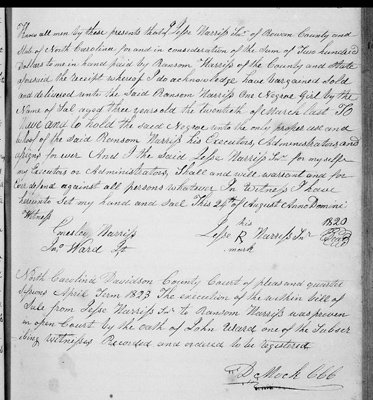 Know all men by these presents that I Jesse Harriss Snr of Rowan County and
State of North Carolina for and in consideration of the Sum of Two hundred
Dollars to me in hand paid by Ransom Harriss of the County and State
aforesaid the receipt whereof I do acknowledge have bargained sold
and delivered unto the said Ransom Harriss One Negroe Girl by the
Name of Sal aged three years old the twentieth of March last To
Have and to hold the said Negroe unto the only proper use and
behoof of the said Ransom Harriss his Executors Administrators and
assigns for ever And I the said Jesse Harriss Snr for myself
my Executors or Administrators, Shall and will warrant and for
ever defend against all persons whatever In witness I have
hereunto Set my hand and Seal This 24th of August Anno Domini
Witness his 1820
Emsley Harriss Jesse R Harriss Snr
Jno Ward mark
North Carolina Davidson County Court of pleas and quarter
sessions April Term 1823 The execution of the within bill of
Sale from Jesse Harriss Snr to Ransom Harriss was proven
in open Court by the oath of John Ward one of the Subscr
ibing witnesses Recorded and ordered to be registered
D Mock CCC